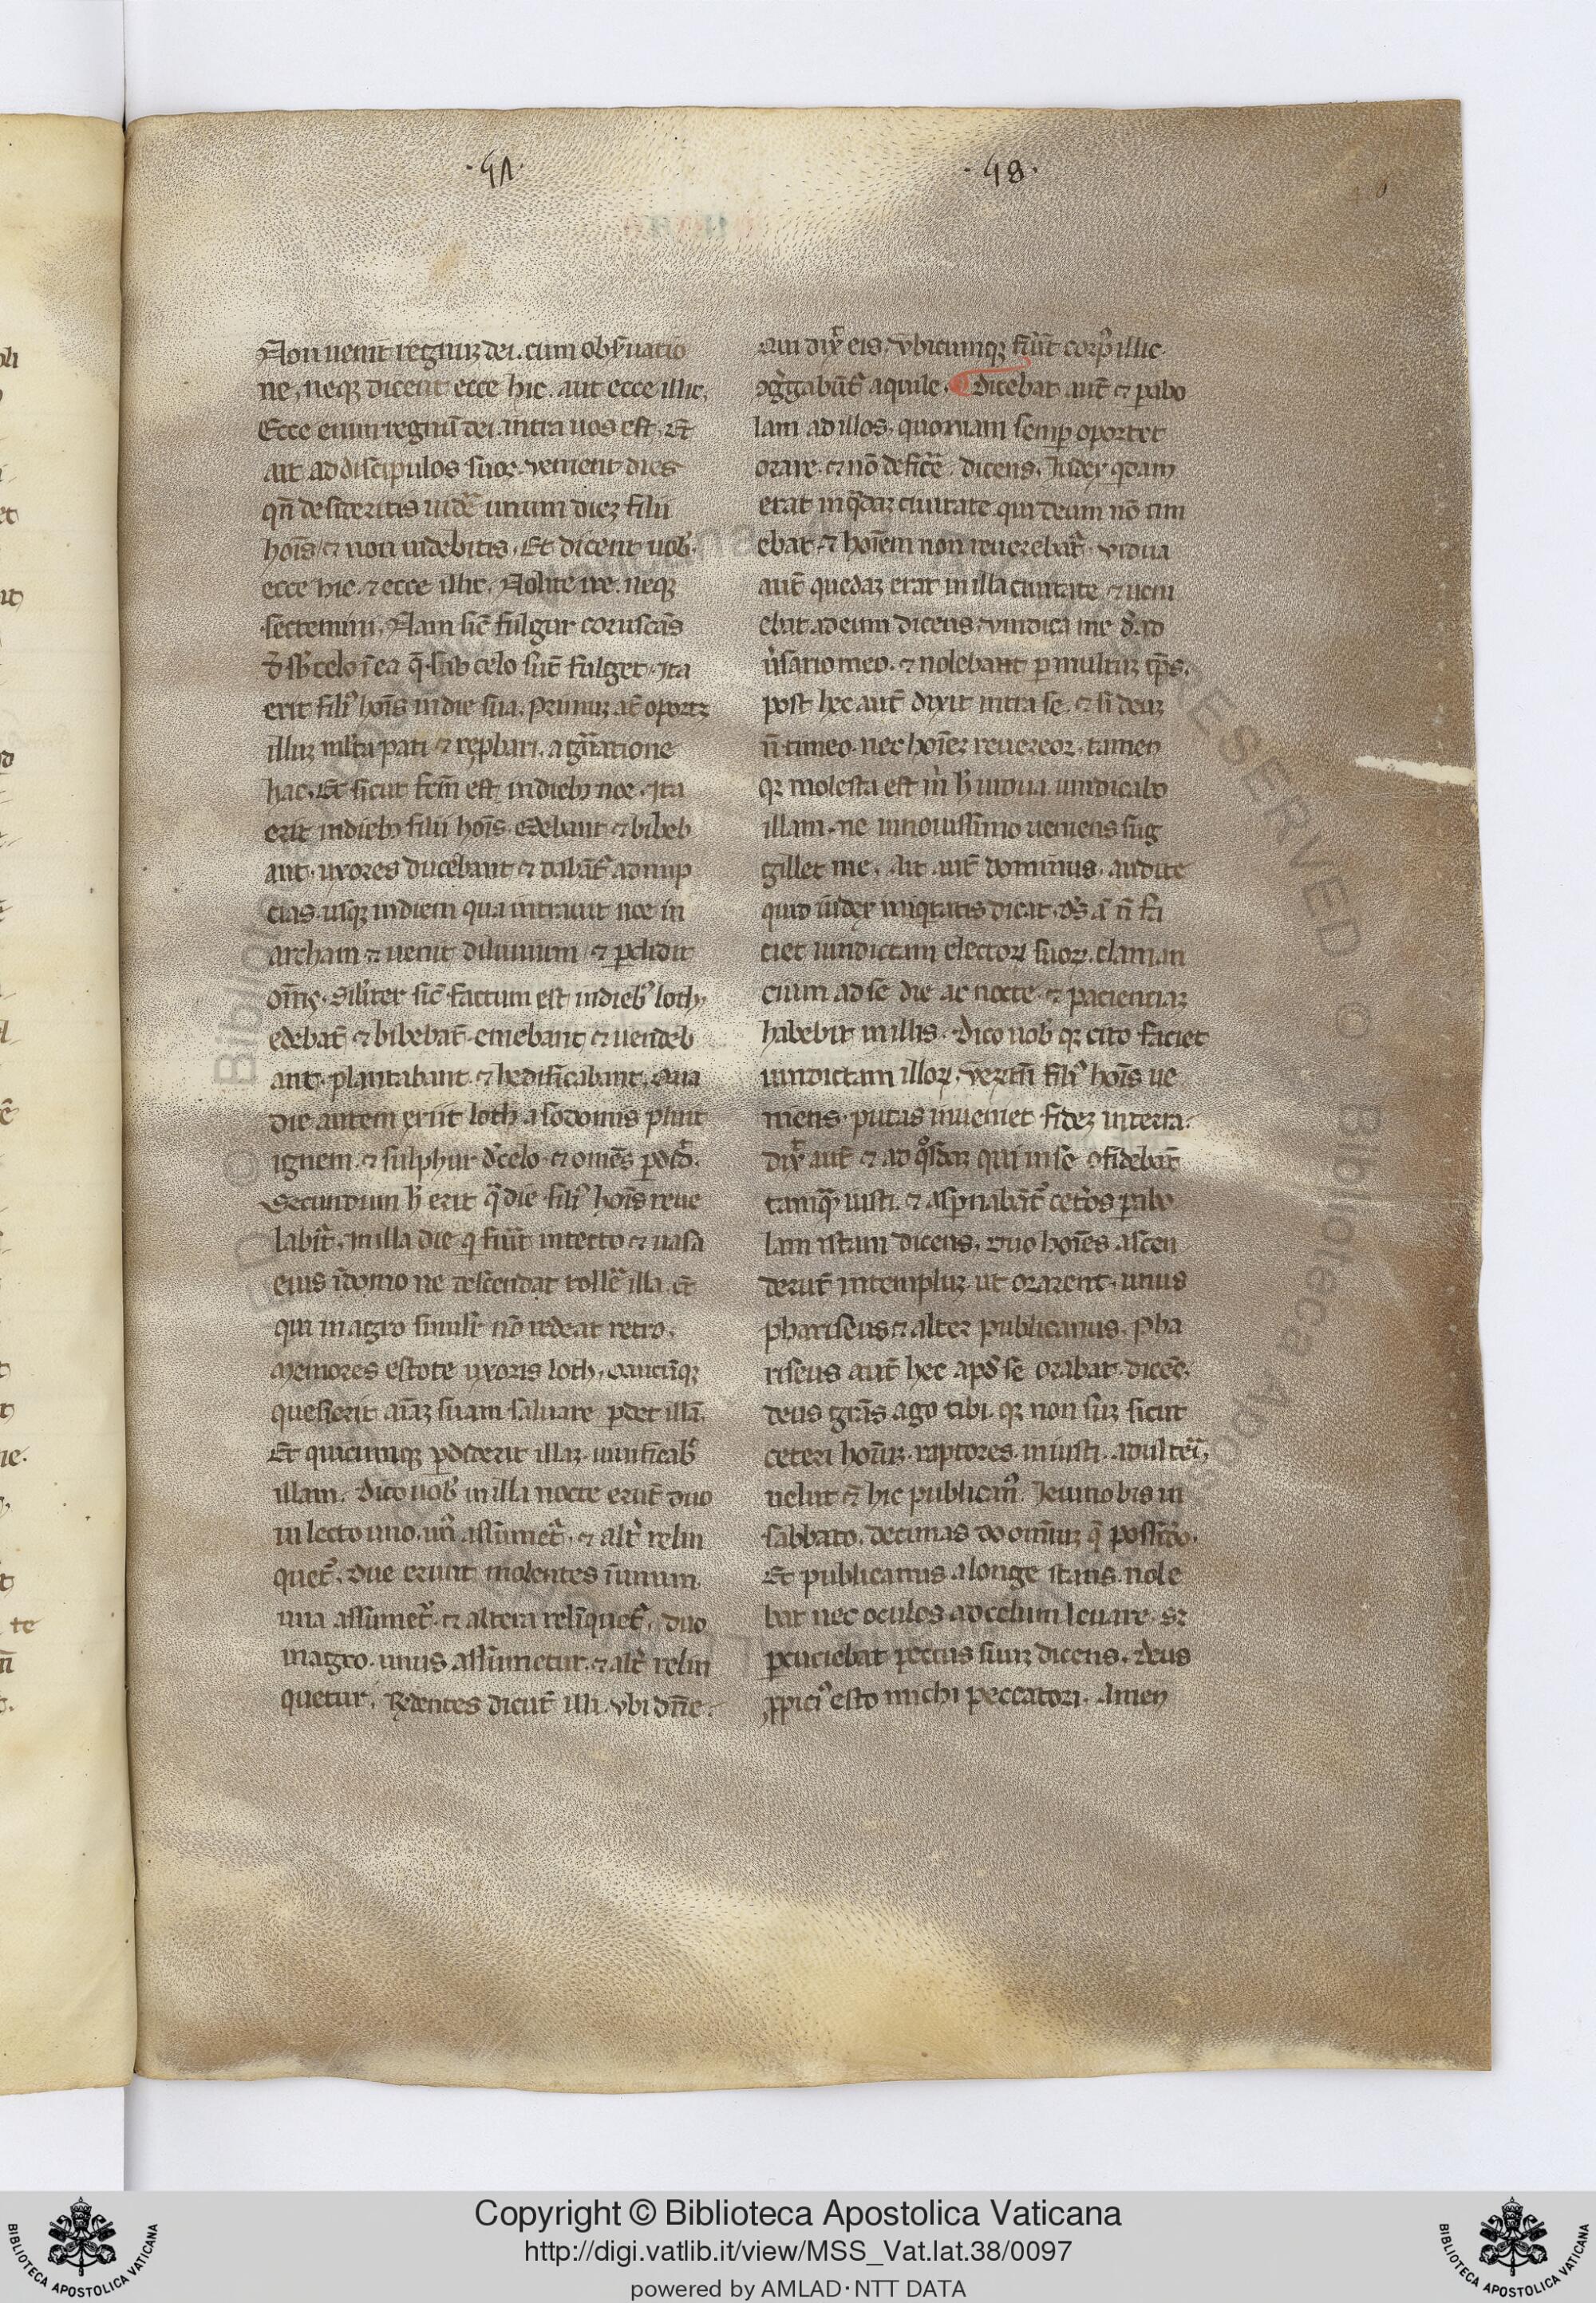 ·47·
·48·
Non uenit regnuꝫ dei. cum obẜuatio
ne, neqꝫ dicent ecce hic. aut ecce illic.
Ecce enim regnū dei. intra uos est. Et
ait ad discipulos suos. venient dies
qn̄ desideritis uidē unum dieꝫ filii
hoīs ⁊ non uidebitis. Et dicent uob̾.
ecce hic. ⁊ ecce illic. Nolite ire. neqꝫ
sectemini. Nam sic̄ fulgur coruscās
d̾ sb̾ celo ī ea q̄ sub celo sūt fulget. Ita
erit fili᾽ hoīs in die sua. Primuꝫ at̄ oportꝫ
illuꝫ ml̾ta pati ⁊ rep̱bari. a gn̄atione
hac. Et sicut fcm̄ est in diebꝫ noe. Ita
erit in diebꝫ filii hoīs. edebant ⁊ bibeb
ant. uxores ducebant ⁊ dabāt᾽ ad nup
cias. usqꝫ in diem qua intrauit noe in
archam ⁊ uenit diluuium ⁊ ꝑdidit
om̄s. Sil̾iter sic̄ factum est in dieb᾽ loth.
edebāt ⁊ bibebāt. emebant ⁊ uendeb
ant. plantabant. ⁊ hedificabant. Qua
die autem exiit loth a sodomis pluit
ignem. ⁊ sulphur d̾ celo. ⁊ omēs ꝑdid̾.
Secundum h̾ erit q̄ die fili᾽ hoīs reue
labit̾. In illa die q fūit in tecto ⁊ uasa
eius ī domo ne descendat toll̾e illa. et
qui in agro simil̾r nō redeat retro.
Memores estote uxoris loth. Quicūqꝫ
quesierit aīaꝫ suam saluare ꝑdet illā.
Et quicumqꝫ ꝑdiderit illaꝫ. uiuificab᾽
illam. Dico uob̾ in illa nocte erūt duo
in lecto uno. un᾽ assumet᾽. ⁊ alt̾ relin
quet᾽. Due erunt molentes ī unum.
una assumet᾽. ⁊ altera relīquet᾽. duo
in agro. unus assumetur. ⁊ alt̾ relin
quetur. Rn̄dentes dicūt illi. vbi dn̄e.
Qui dix̾ eis. Vbicumqꝫ fūit corp᾽ illic.
ꝯg̾gabūt᾽ aquile. Dicebat aut̄ ⁊ ꝑabo
lam ad illos. quoniam semꝑ oportet
orare. ⁊ nō defic̾e. dicens. Iudex q̇dam
erat in q̇daꝫ ciuitate qui deum nō tim
ebat. ⁊ hoīem non reuerebat᾽. vidua
aut̄ quedaꝫ erat in illa ciuitate. ⁊ ueni
ebat ad eum dicens. vindica me d̾ ad
u̾sario meo. ⁊ nolebant ꝑ multuꝫ tp̄s.
post hec aut̄ dixit intra se. ⁊ si deuꝫ
n̄ timeo. nec hoīeꝫ reuereor. tamen
qꝛ molesta est m̾ h̾ vidua. uindicabo
illam. ne in nouissimo ueniens sug
gillet me. Ait aut̄ dominus. audite
quid iudex iniq̇tatis dicat. ds̄ aū n̄ fa
ciet uindictam electorꝝ suorꝝ. claman
cium ad se die ac nocte. ⁊ pacientiaꝫ
habebit in illis. Dico uob̾ qꝛ cito faciet
uindictam illorꝝ. Veꝝtn̄ fili᾽ hoīs ue
niens. putas inueniet fideꝫ in terra.
Dix̾ aut̄ ⁊ ad qͦsdaꝫ qui in se ꝯfidebāt
tamqᷓ iusti. ⁊ asꝑnabāt᾽ cet̾os ꝑabo
lam istam dicens. Duo hoīes ascen
derūt in templuꝫ ut orarent. unus
phariseus ⁊ alter publicanus. Pha
riseus aut̄ hec apd̾ se orabat. dicēs.
deus gr̄as ago tibi. qꝛ non suꝫ sicut
ceteri hoīuꝫ. raptores. iniusti. adulteri.
uelut ⁊ hic publican᾽. Ieiuno bis in
sabbato. decimas do omniuꝫ q̄ possideo.
Et publicanus a longe stans. nole
bat nec oculos ad celum leuare. Sꝫ
ꝑcuciebat pectus suuꝫ dicens. Deus
ꝓpici᾽ esto michi peccatori. Amen
Copyright © Biblioteca Apostolica Vaticana
http://digi.vatlib.it/view/MSS_Vat.lat.38/0097
powered by AMLAD·NTT DATA
BIBLIOTECA APOSTOLICA VATICANA
BIBLIOTECA APOSTOLICA VATICANA